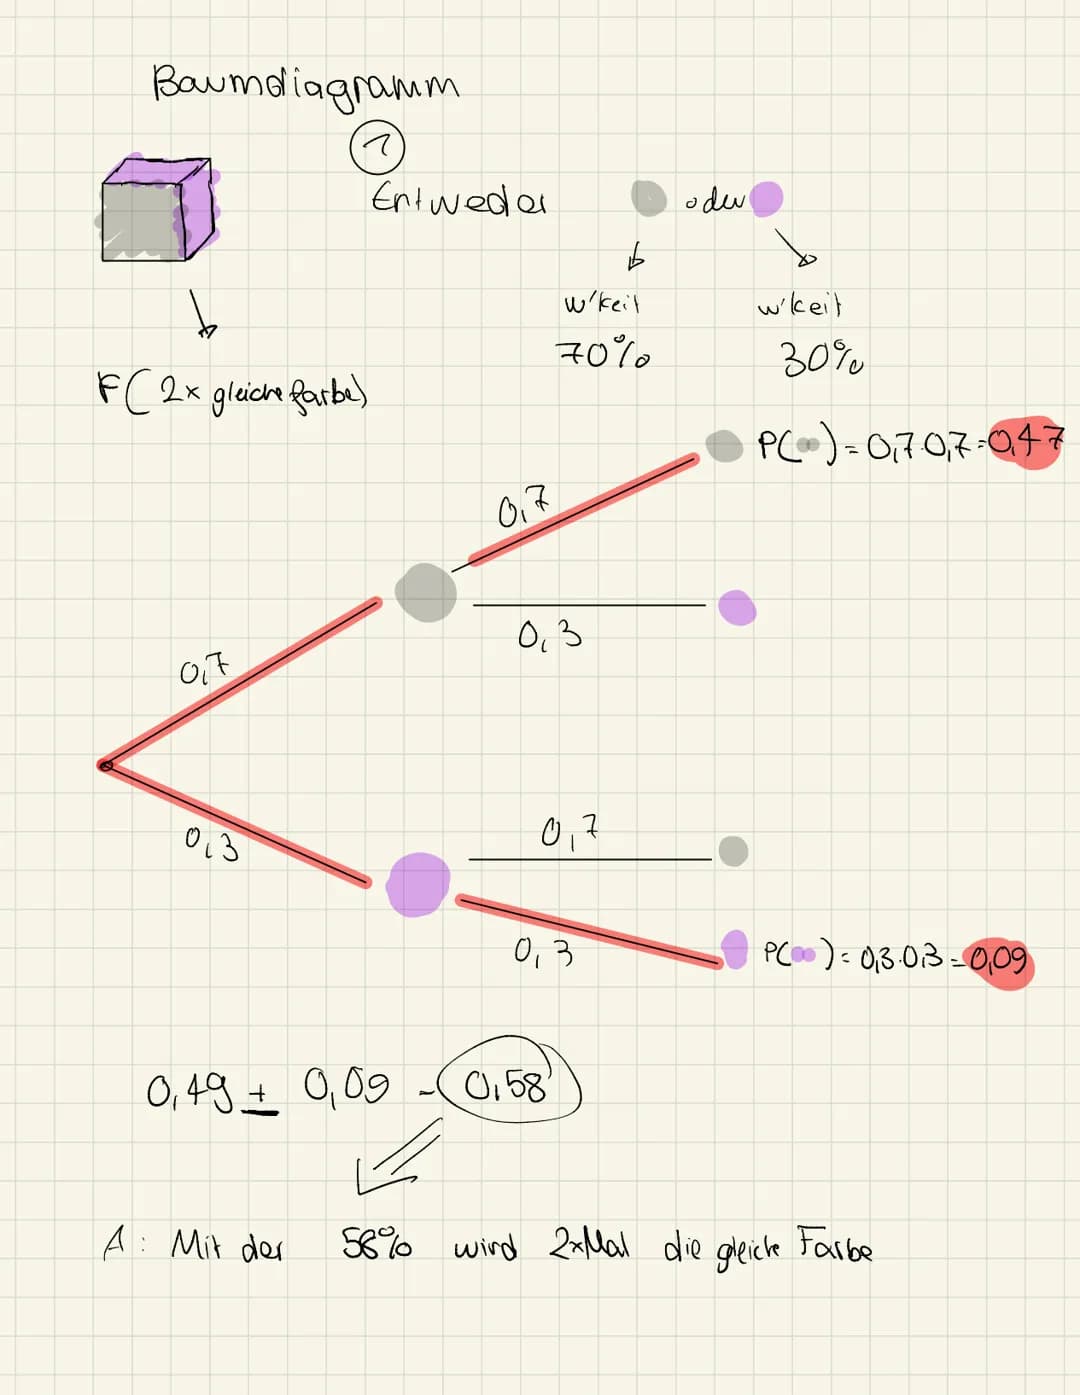 Baumdiagramm
1
Entweder oder
w'keit w'keit
70% 30%
F( 2x gleiche farbe)
P( ) = 0,7·0,7=0,47
0,7
0,3
0,7
0,3
0,7
0,3
P( ) = 0,3·0,3=0,09
0,49 + 0,09 = 0,58
A: Mit der 58% wird 2xMal die gleiche Farbe